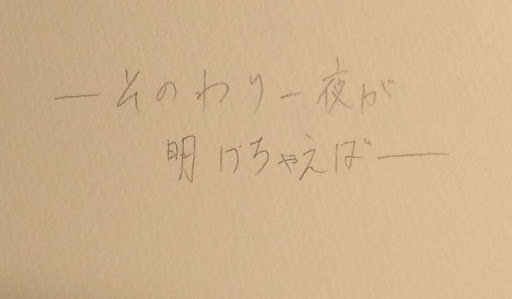 ―そのわり一夜が
明けちゃえば―